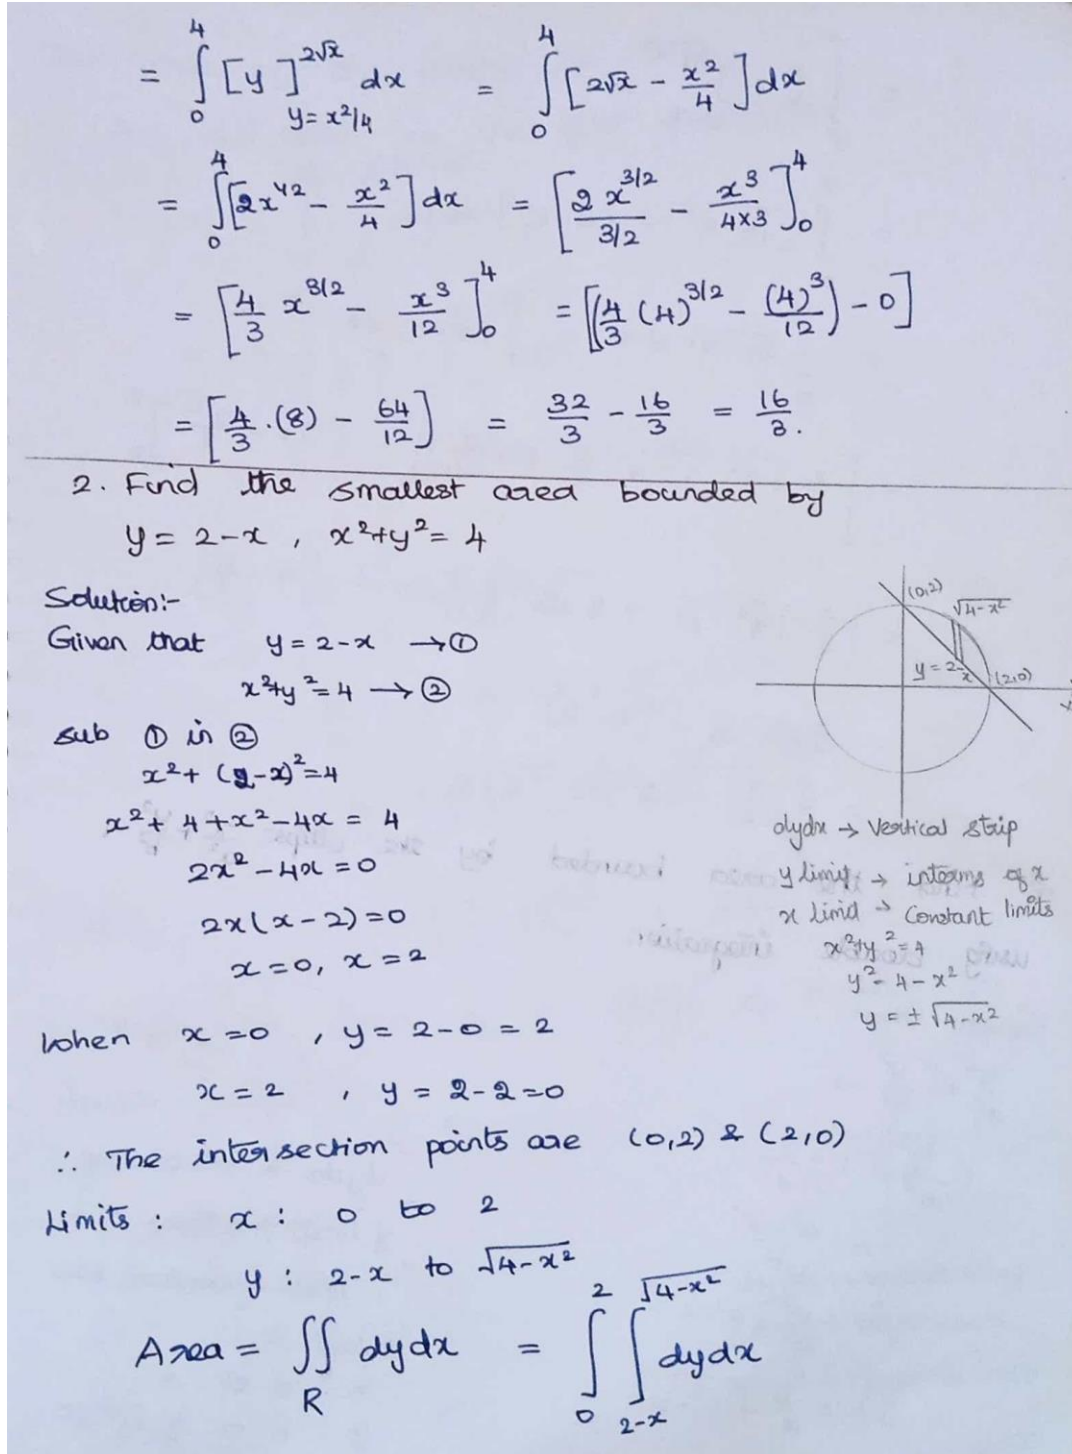 = ∫₀⁴ [y]^{2√x}_{y=x²/4} dx = ∫₀⁴ [2√x - x²/4] dx
= ∫₀⁴ [2x^{1/2} - x²/4] dx = [2 x^{3/2} / 3/2 - x³/4×3]₀⁴
= [4/3 x^{3/2} - x³/12]₀⁴ = [(4/3 (4)^{3/2} - (4)³/12) - 0]
= [4/3 . (8) - 64/12] = 32/3 - 16/3 = 16/3.
2. Find the smallest area bounded by
y = 2-x , x²+y² = 4
Solution:-
Given that y = 2-x → ①
x²+y² = 4 → ②
sub ① in ②
x² + (2-x)² = 4
x² + 4 + x² - 4x = 4
2x² - 4x = 0
2x(x-2) = 0
x = 0, x = 2
When x = 0 , y = 2-0 = 2
x = 2 , y = 2-2 = 0
∴ The intersection points are (0,2) & (2,0)
Limits : x : 0 to 2
y : 2-x to √4-x²
Area = ∬_R dydx = ∫₀² ∫_{2-x}^{√4-x²} dydx
(0,2)
√4-x²
y = 2-x
(2,0)
x
dydx → Vertical strip
y limit → interms of x
x limit → Constant limits
x²+y² = 4
y² = 4-x²
y = ± √4-x²